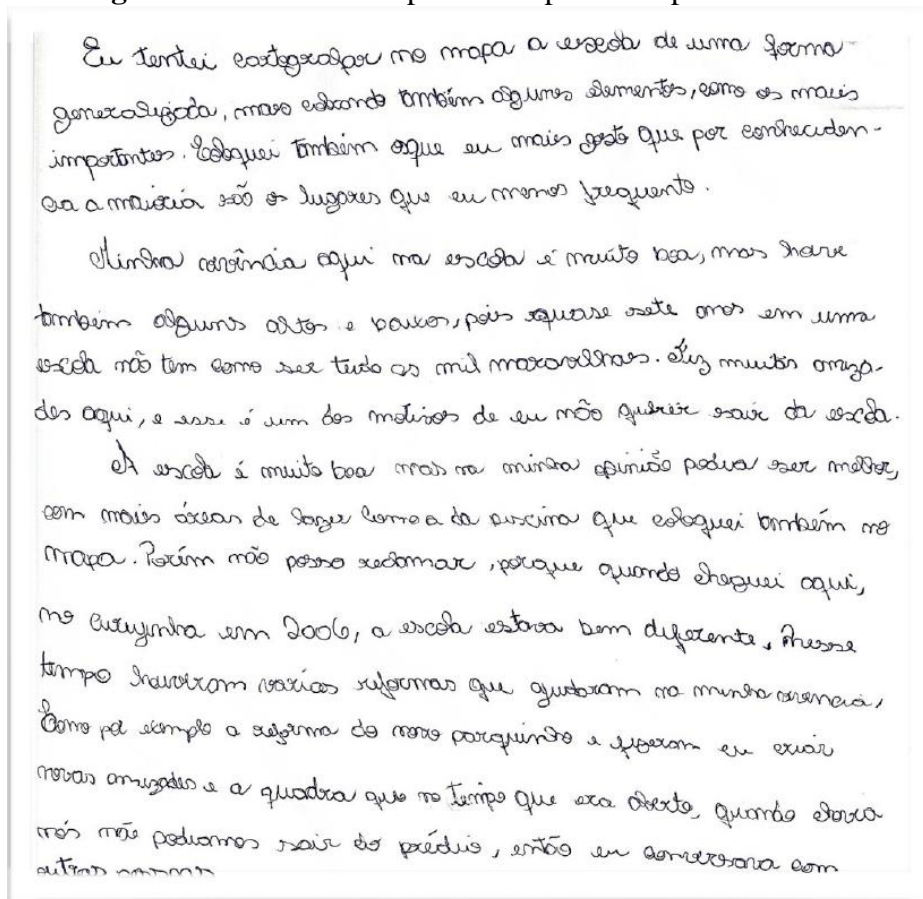 Eu tentei cartografar no mapa a escola de uma forma
generalizada, mas colocando também alguns elementos, como os mais
importantes. Coloquei também oque eu mais gosto que por conheciden-
cia a maioria são os lugares que eu menos frequento.
Minha vivência aqui na escola é muito boa, mas houve
também alguns altos e baixos, pois quase sete anos em uma
escola não tem como ser tudo as mil maravilhas. Fiz muitas amiza-
des aqui, e esse é um dos motivos de eu não querer sair da escola.
A escola é muito boa mas na minha opinião podia ser melhor,
com mais áreas de lazer como a da piscina que coloquei também no
mapa. Porém não posso reclamar, porque quando cheguei aqui,
no em 2006, a escola estava bem diferente, nesse
tempo houveram varias reformas que ajudaram na minha vivencia,
Como por exemplo a reforma do novo parquinho e fizeram eu criar
novas amizades e a quadra que no tempo que era aberta, quando chovia
nós não podiamos sair do prédio, então eu conversava com
outras